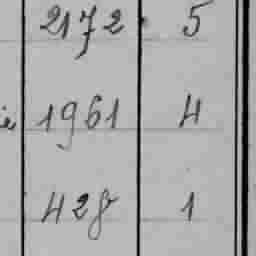 2172 5
1961 4
428 1